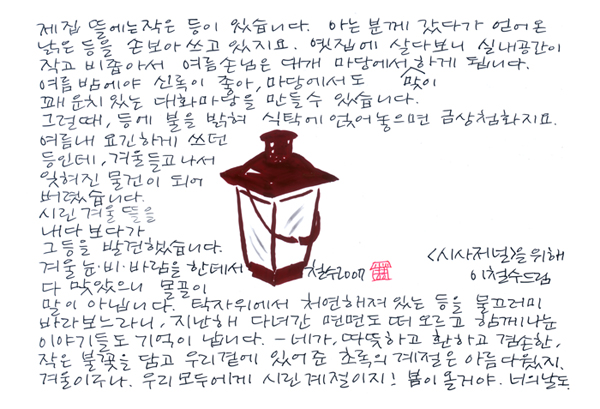 제집 뜰에는 작은 등이 있습니다. 아는 분께 갔다가 얻어온
낡은 등을 손보아 쓰고 있지요. 옛집에 살다보니 실내공간이
작고 비좁아서 여름손님은 대개 마당에서 맞이하게 됩니다.
여름 밤에야 신록이 좋아, 마당에서도
꽤 운치있는 대화마당을 만들수 있습니다.
그럴때, 등에 불을 밝혀 식탁에 얹어놓으면 금상첨화지요.
여름내 요긴하게 쓰던
등인데, 겨울들고나서
잊혀진 물건이 되어
버렸습니다.
시린 겨울 뜰을
내다보다가
그등을 발견했습니다.
겨울 눈·비·바람을 한데서
다 맞았으니 몰골이
철수2007
<시사저널>을 위해
이철수드림
말이 아닙니다. 탁자위에서 처연해져 있는 등을 물끄러미
바라보느라니, 지난해 다녀간 면면도 떠 오르고 함께나눈
이야기들도 기억이 납니다. - 네가, 따뜻하고 환하고 겸손한,
작은 불꽃을 담고 우리곁에 있어준 초록의 계절은 아름다웠지.
겨울이구나. 우리 모두에게 시린 계절이지! 봄이 올거야. 너의날도.